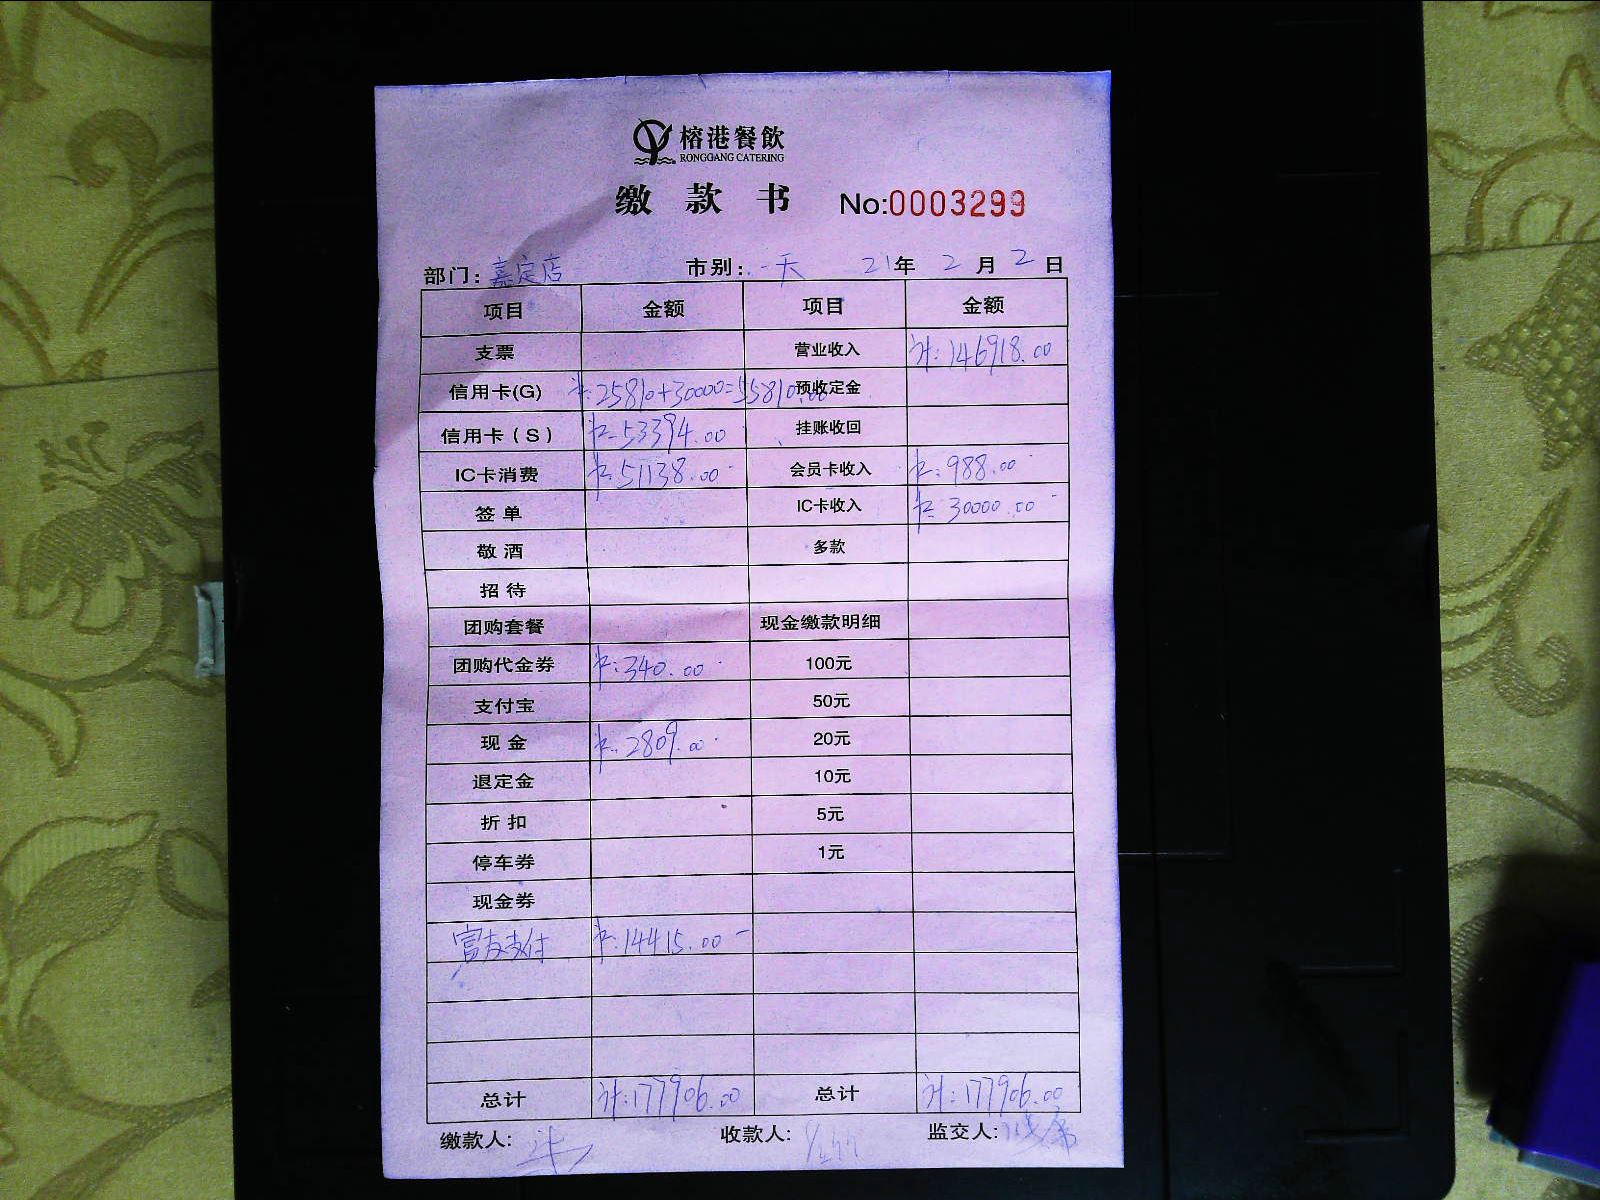 榕港餐飲
RONGGANG CATERING
缴 款 书 No:0003299
部门: 嘉定店 市别: 一天 21年 2月 2日
项目 金额 项目 金额
支票 营业收入 计: 146918.00
信用卡(G) 计: 25810+30000=55810.00 预收定金
信用卡(S) 计: 53394.00 挂账收回
IC卡消费 计: 51138.00 会员卡收入 计: 988.00
签单 IC卡收入 计: 30000.00
敬酒 多款
招待
团购套餐 现金缴款明细
团购代金券 计: 340.00 100元
支付宝 50元
现金 计: 2809.00 20元
退定金 10元
折扣 5元
停车券 1元
现金券
富友支付 计: 14415.00
总计 计: 177906.00 总计 计: 177906.00
缴款人: 收款人: 监交人: